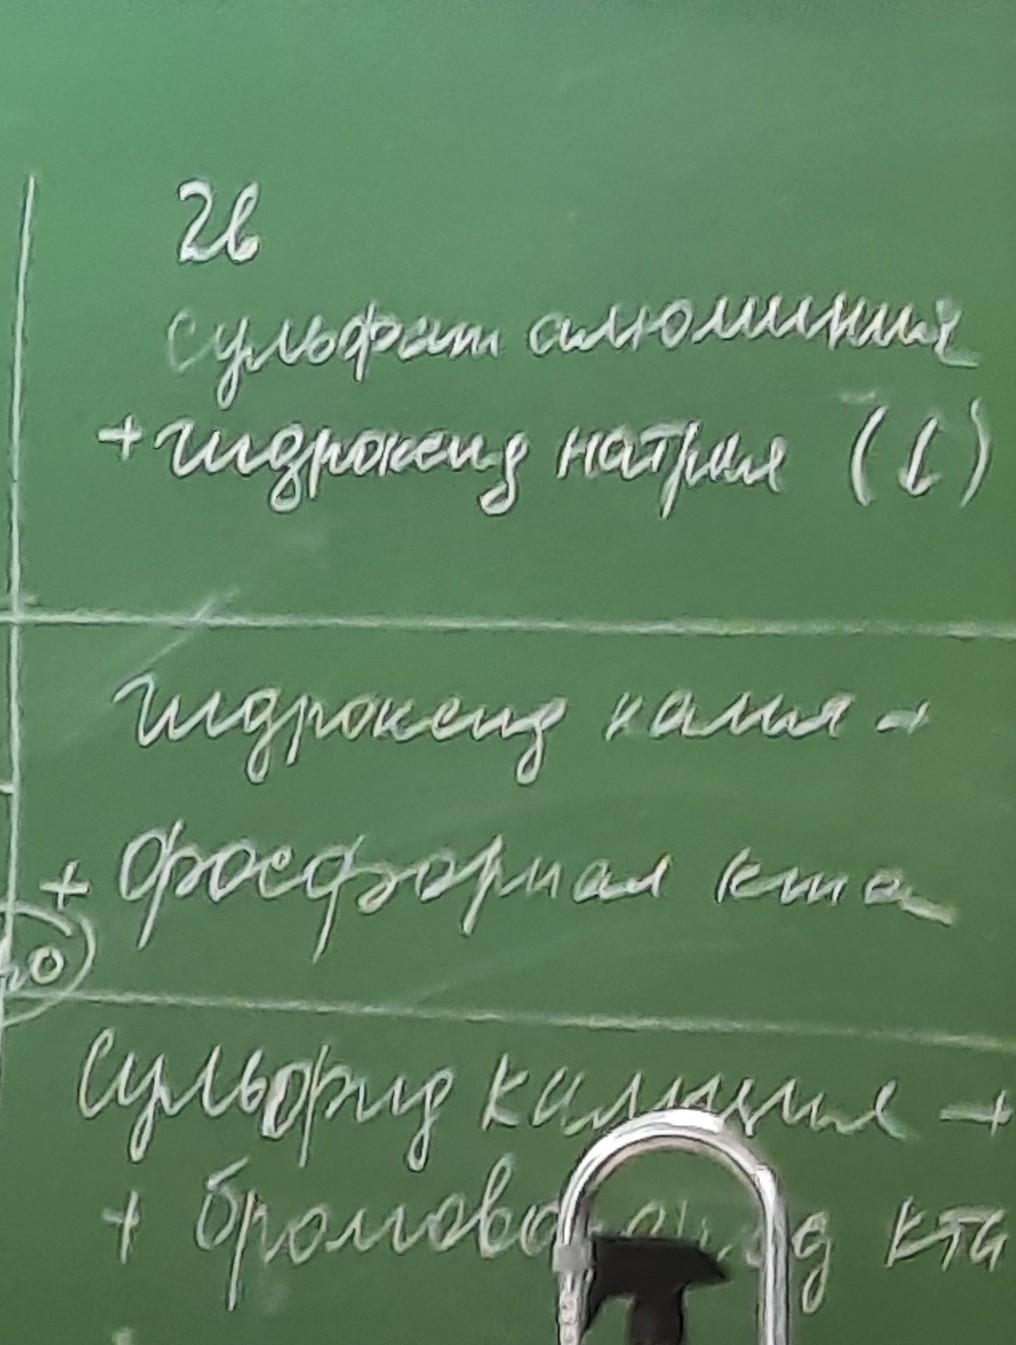 2в
сульфат алюминия
+ гидроксид натрия (↓)
гидроксид калия +
+ фосфорная кта
сульфид кальция +
+ кта